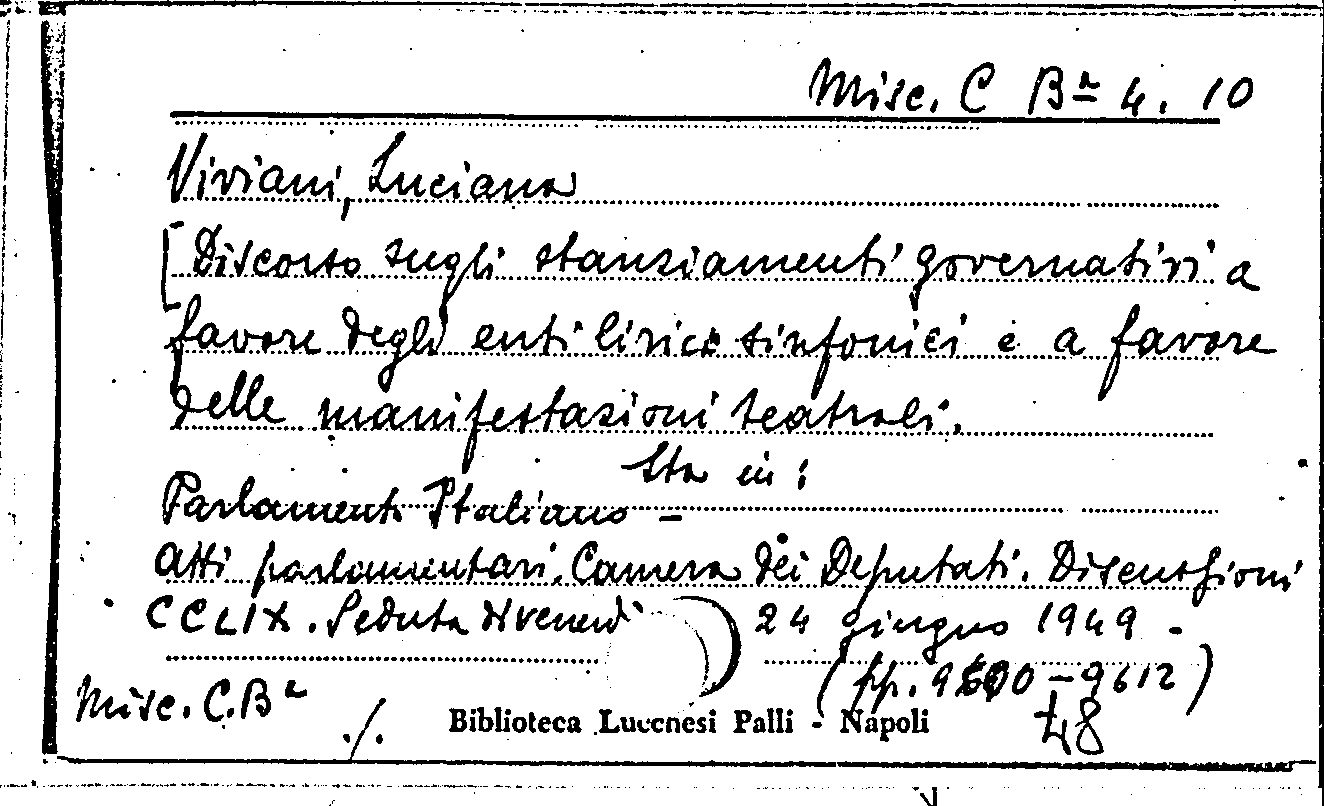 Misc. C Bª 4. 10
Viviani, Luciana
[Discorso sugli stanziamenti governativi a
favore degli enti lirici sinfonici e a favore
delle manifestazioni teatrali.
Sta in:
Parlamento Italiano -
Atti parlamentari. Camera dei Deputati. Discussioni
CCLIX. Seduta di venerdì 24 giugno 1949 -
(pp. -9612)
Misc. C. Bª ./. Biblioteca Lucchesi Palli - Napoli 48